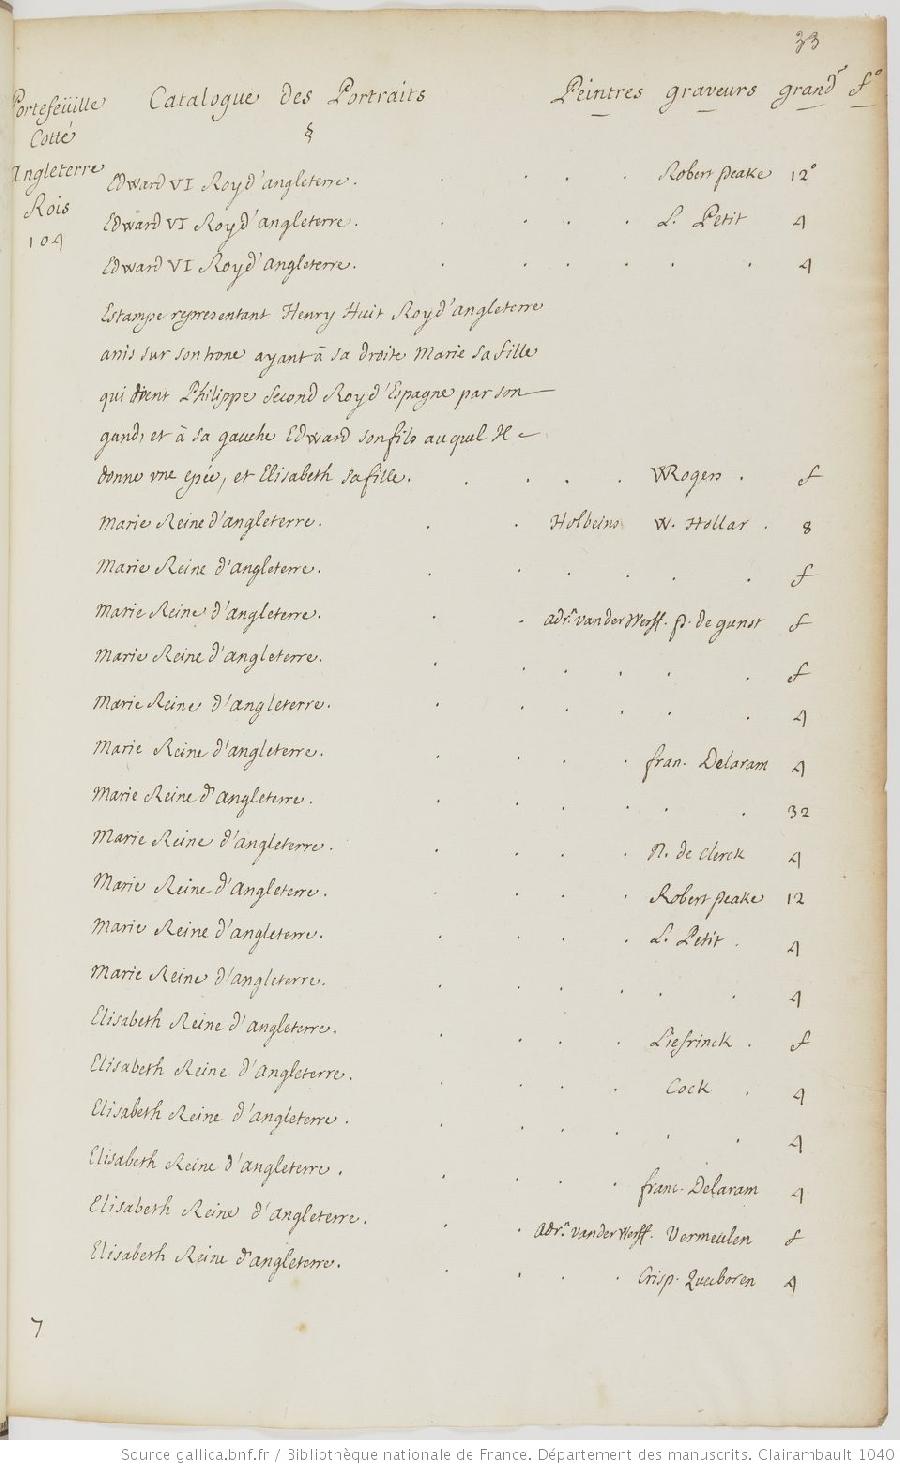 33
Portefeüille Catalogue des Portraits Peintres graveurs grandr fo
Cotté §
Angleterre
Rois
104
Edward VI Roy d'angleterre. Robert peake 12o
Edward VI Roy d'angleterre. L. Petit 4
Edward VI Roy d'Angleterre. 4
Estampe representant Henry Huit Roy d'angleterre
assis sur son trone ayant à sa droite Marie sa fille
qui tient Philippe second Roy d'Espagne par son
gand, et à sa gauche Edward son fils auquel Il
donne vne epée, et Elisabeth sa fille. WRogers. f
Marie Reine d'angleterre. Holbeins W. Hollar. 8
Marie Reine d'angleterre. f
Marie Reine d'angleterre. adr.n vander Werff. p. de gunst f
Marie Reine d'angleterre. f
Marie Reine d'angleterre. 4
Marie Reine d'angleterre. fran. Delaram 4
Marie Reine d'Angleterre. 32
Marie Reine d'angleterre. N. de Clerck 4
Marie Reine d'Angleterre. Robert peake 12
Marie Reine d'Angleterre. L. Petit. 4
Marie Reine d'angleterre. 4
Elisabeth Reine d'Angleterre. Liefrinck. f
Elisabeth Reine d'Angleterre. Cock 4
Elisabeth Reine d'angleterre. 4
Elisabeth Reine d'angleterre. franc. Delaram 4
Elisabeth Reine d'Angleterre. adr.n vander Werff. Vermeulen f
Elisabeth Reine d'angleterre. Crisp. Queboren 4
7
Source gallica.bnf.fr / Bibliothèque nationale de France. Département des manuscrits. Clairambault 1040